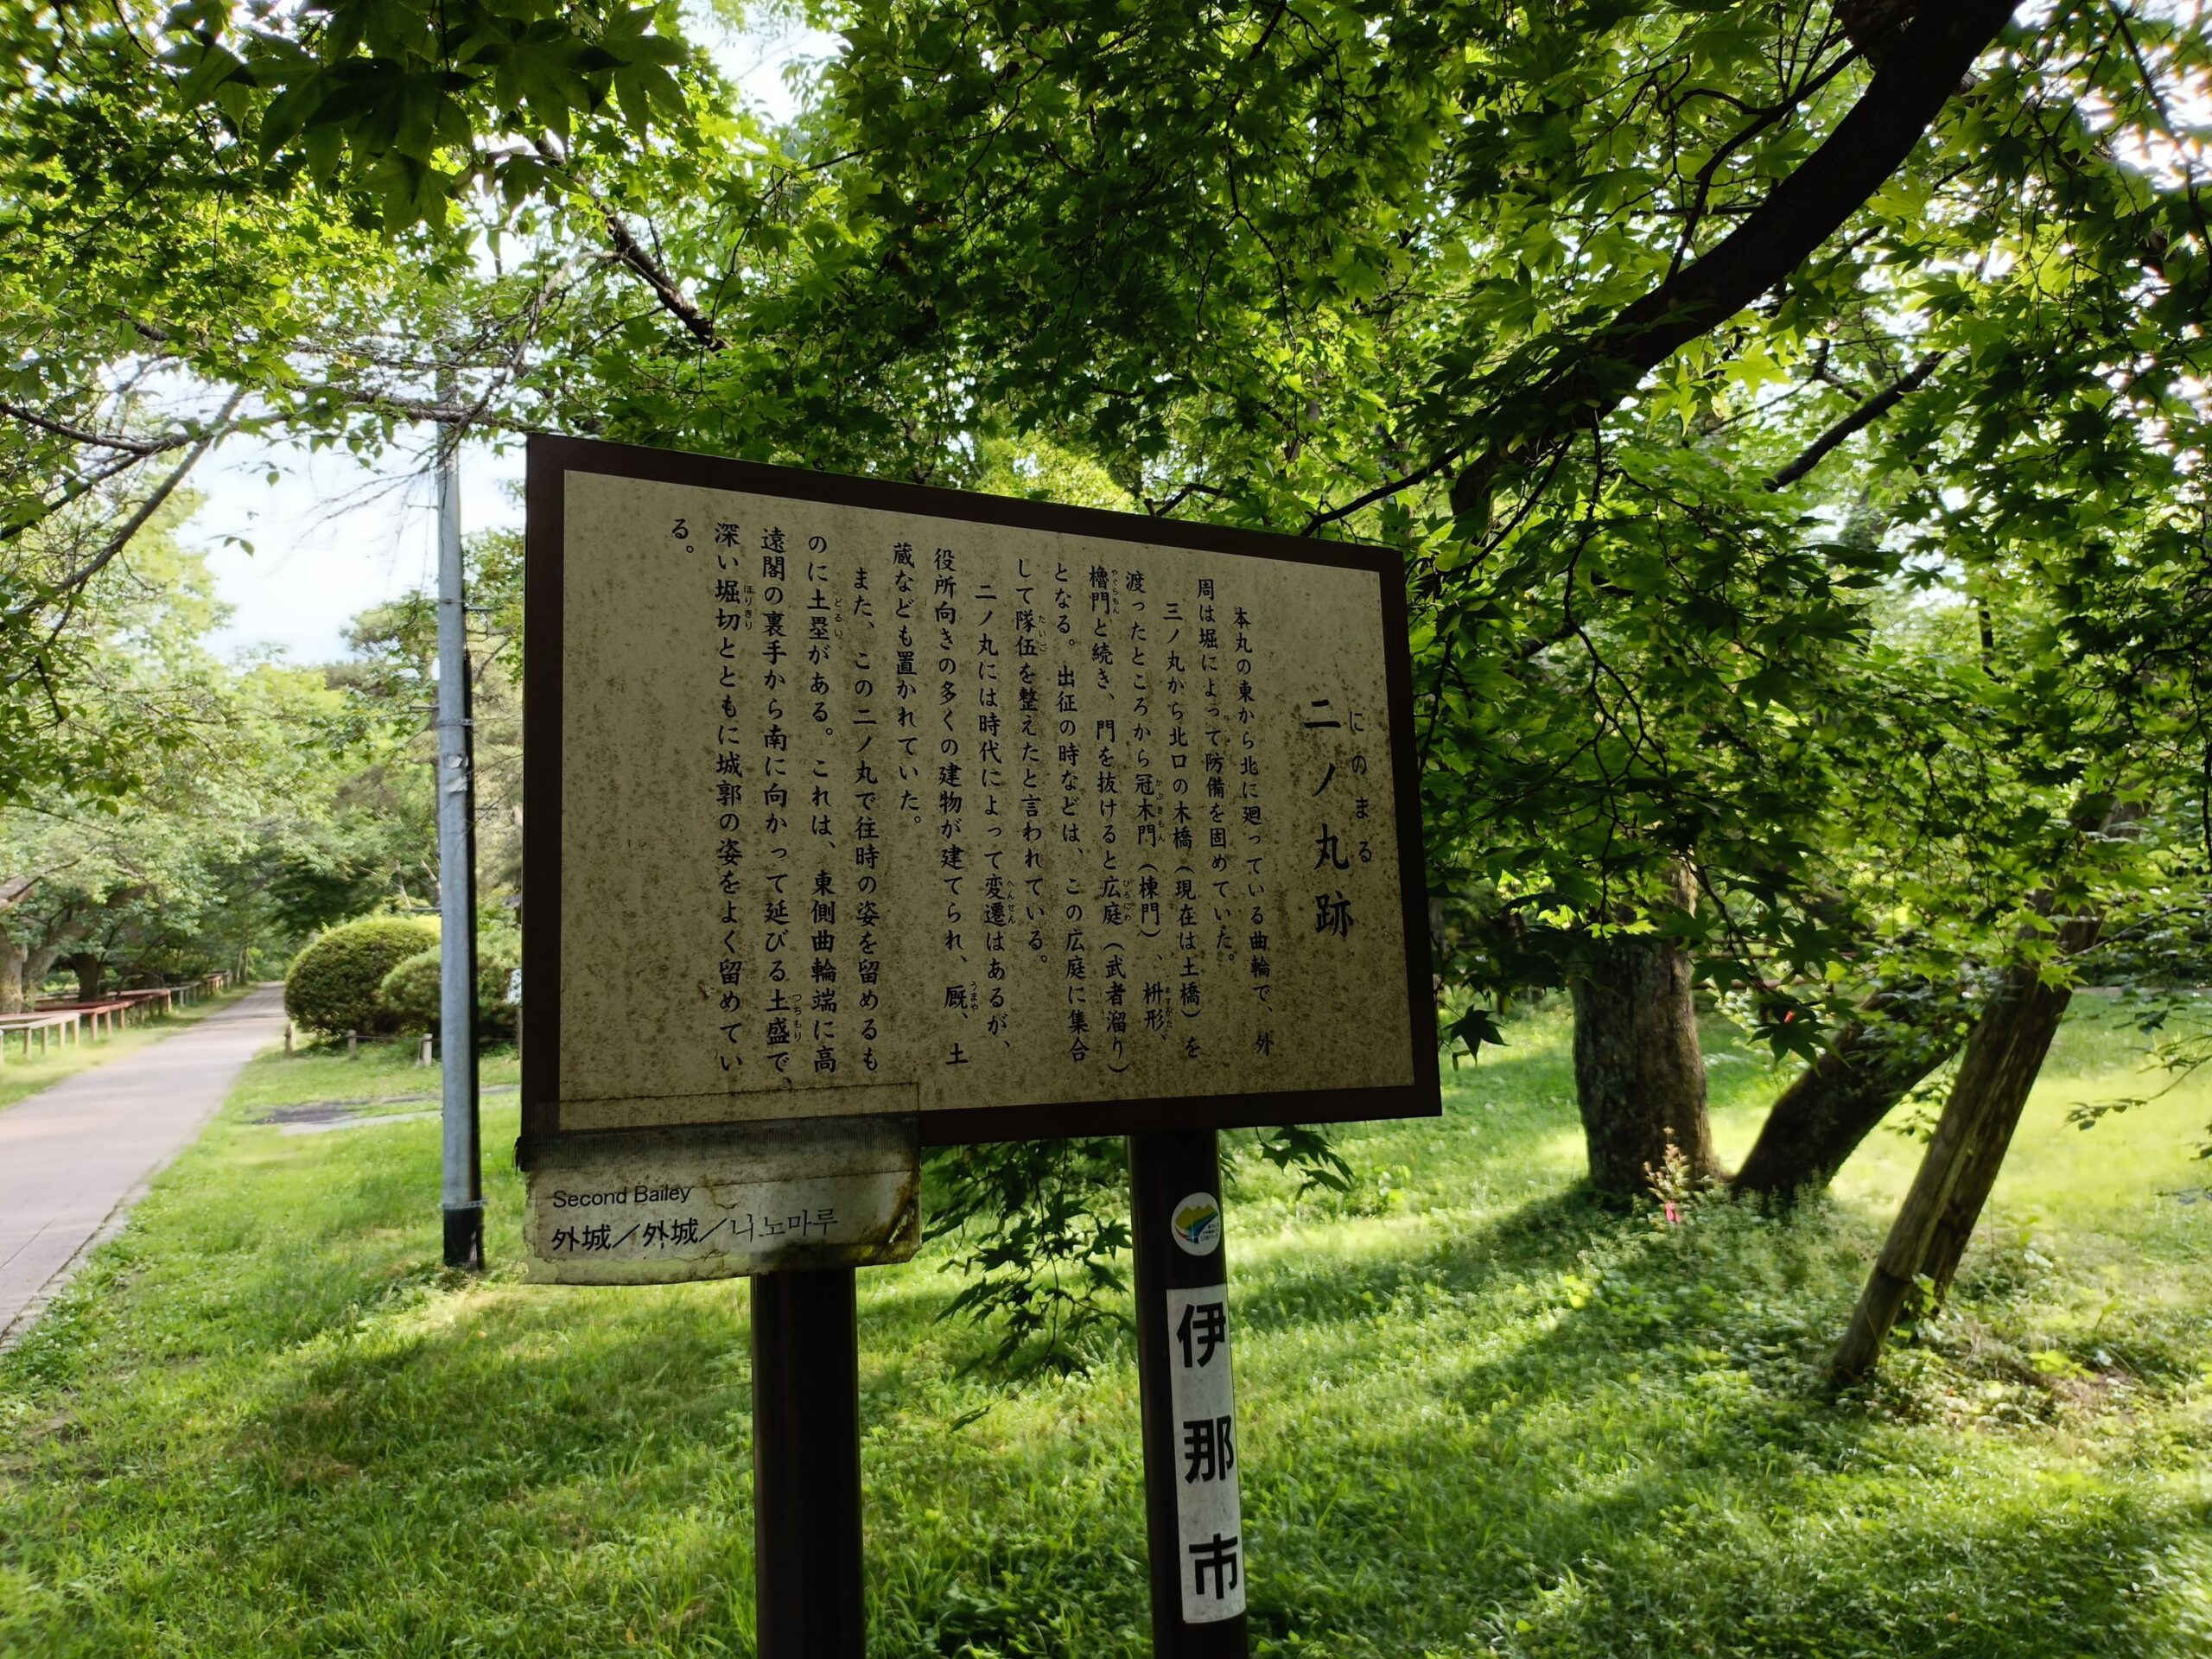 にのまる
二ノ丸跡
本丸の東から北に廻っている曲輪で、外
周は堀によって防備を固めていた。
三ノ丸から北口の木橋（現在は土橋）を
渡ったところから冠木門（棟門）、枡形、
櫓門と続き、門を抜けると広庭（武者溜り）
となる。出征の時などは、この広庭に集合
して隊伍を整えたと言われている。
二ノ丸には時代によって変遷はあるが、
役所向きの多くの建物が建てられ、厩、土
蔵なども置かれていた。
また、この二ノ丸で往時の姿を留めるも
のに土塁がある。これは、東側曲輪端に高
遠閣の裏手から南に向かって延びる土盛で、
深い堀切とともに城郭の姿をよく留めてい
る。
Second Bailey
外城／外城／니노마루
伊那市